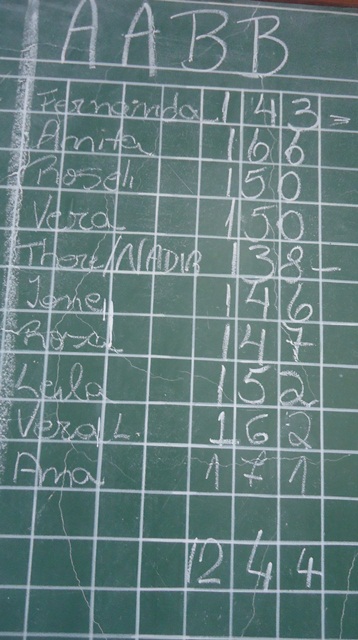 AABB
Fernanda 143 =
Anita 166
Roseli 150
Vera 150
Thore/NADIR 138 -
Ione 146
Rosa 147
Leila 152
Vera L. 162
Ana 171
1244